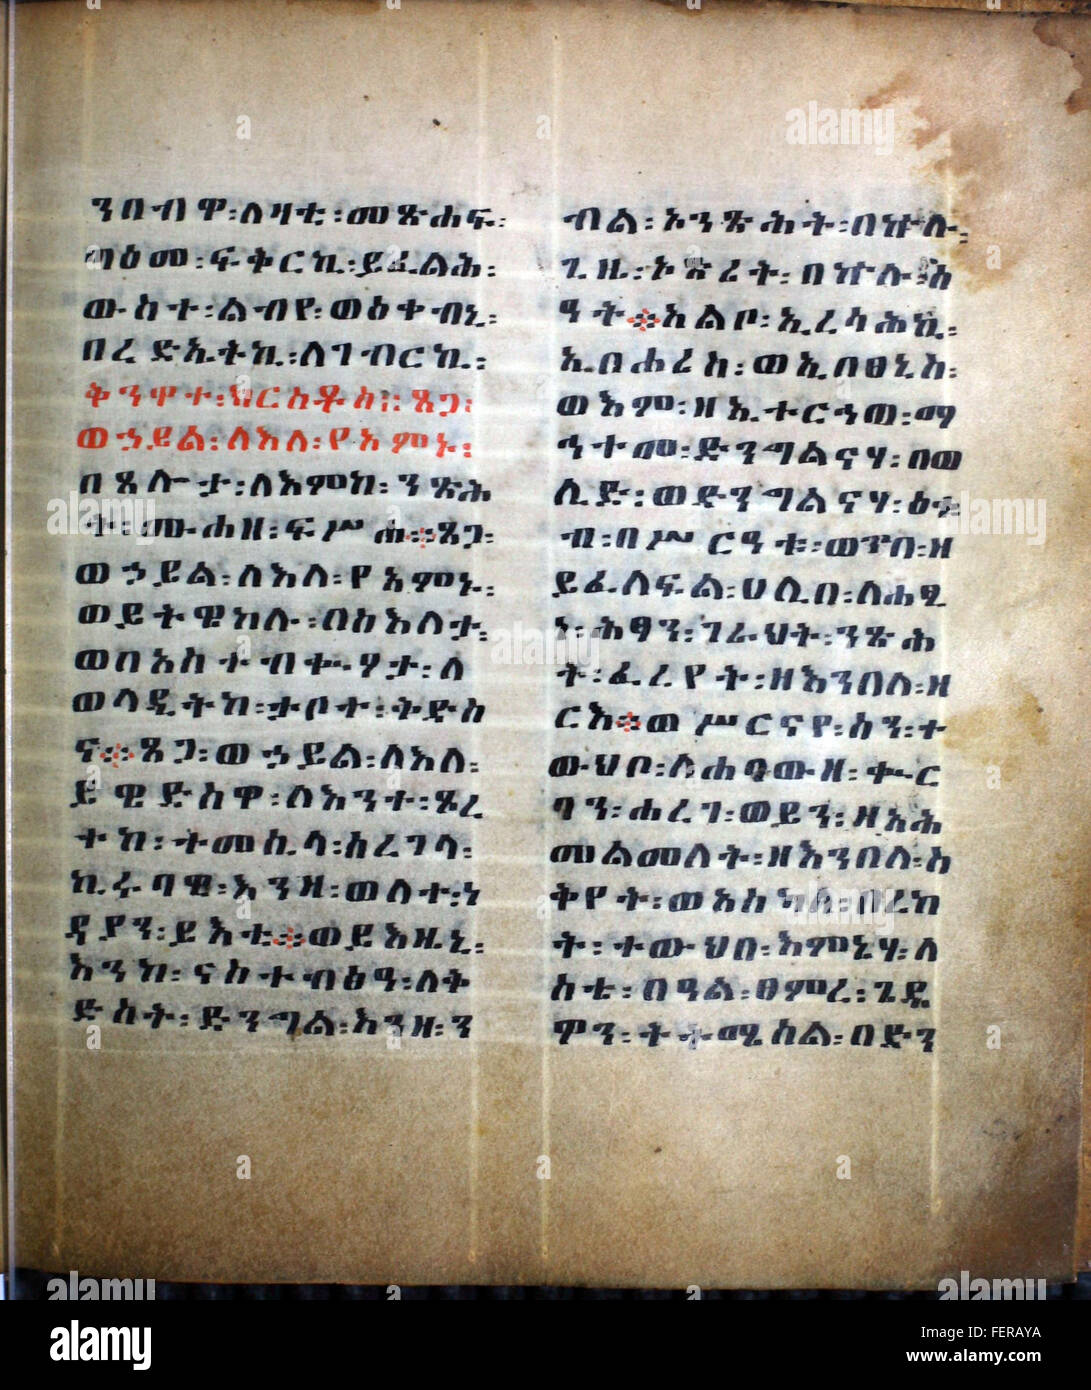 ንበብዋ፡ለዛቲ፡መጽሐፍ፡
ጣዕመ፡ፍቅርኪ፡ይፈልሕ፡
ውስተ፡ልብየ፡ወዕቀብኒ፡
በረድኤትኪ፡ለገብርኪ፡
ቅንዋተ፡ ጸጋ፡
ወኃይል፡ለእለ፡የአምኑ፡
በጸሎታ፡ለእምከ፡ንጽሕ
ተ፡ ፍሥሐ፨ጸጋ፡
ወኃይል፡ለእለ፡የአምኑ፡
ወይትዌከሉ፡በስእለታ፡
ወበአስተብቍዖታ፡ለ
ወላዲትከ፡ታቦተ፡ትድስ
ና፨ጸጋ፡ወኃይል፡ለእለ፡
ይዌድስዋ፡ለእንተ፡ጾረ
ተከ፡ተመሲላ፡ሰረገላ፡
ኪሩባዊ፡እንዘ፡ወለተ፡ነ
ዳያን፡ይእቲ፨ወይእዜኒ፡
እንከ፡ናስተብፅዓ፡ለቅ
ድስት፡ድንግል፡እንዘ፡ን
ብል፡ኦንጽሕት፡በኵሉ፡
ጊዜ፡ኦጽረት፡በኵሉ፡ሰ
ዓት፨አልቦ፡ኢረሳሕኪ፡
ኢበሐሪስ፡ወኢበፀኒስ፡
ወእም፡ዘኢተርኅወ፡ማ
ኅተመ፡ድንግልናሃ፡በወ
ሊድ፡ወድንግልናሃ፡ዕፁ
ብ፡በሥርዓቱ፡ወጥበ፡ዘ
ይፈለፍል፡ሀሊበ፡ለሐፂ
ነ፡ሕፃን፡ገራህት፡ንጽሕ
ት፡ፈረየት፡ዘእንበለ፡ዘ
ርእ፨ወሥርናየ፡ስን፡ተ
ውህቦ፡ ቍር
ባን፡ሐረገ፡ወይን፡ዘአሕ
መልመለት፡ዘእንበለ፡ስ
ቅየት፡ወአስካለ፡በረከ
ት፡ተውህበ፡እምኔሃ፡ለ
ስቴ፡በዓል፡ፀምረ፡ጌዴ
ዎን፡ትትሜሰል፡በድን